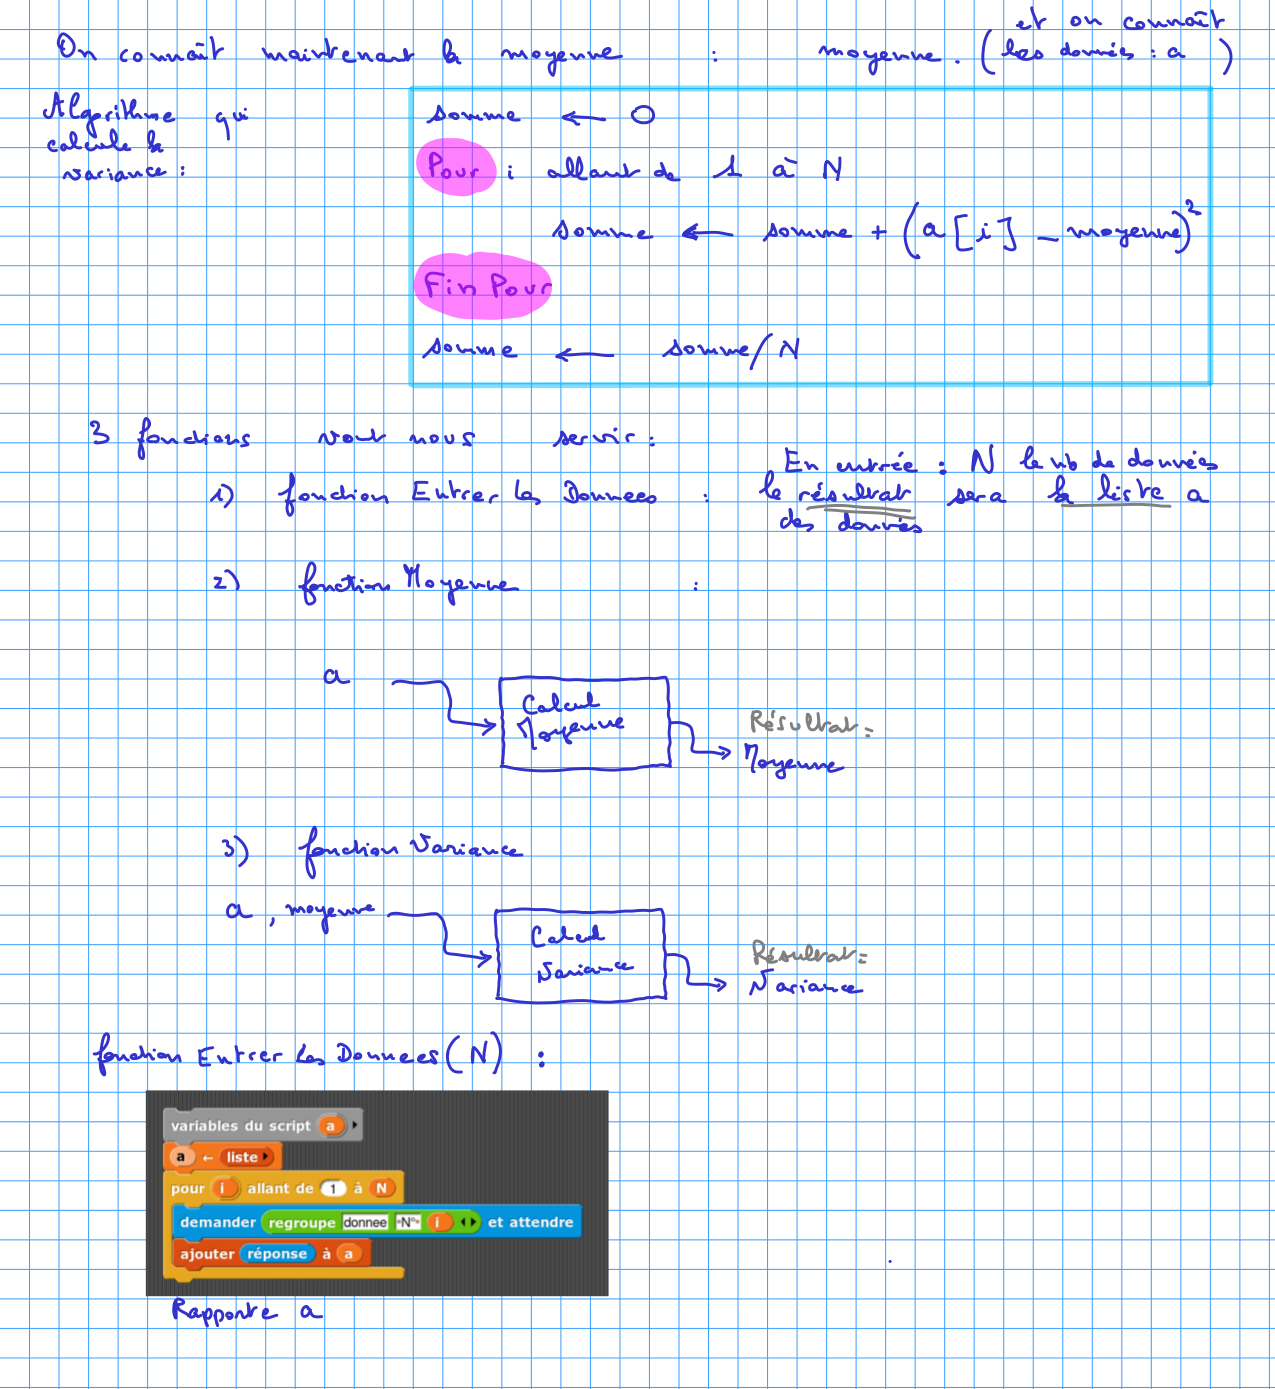 et on connaît
On connaît maintenant la moyenne : moyenne. (les données : a )
Algorithme qui
calcule la
variance :
somme ← 0
Pour i allant de 1 à N
somme ← somme + (a[i] - moyenne)²
Fin Pour
somme ← somme/N
3 fonctions vont nous servir :
1) fonction Entrer Les Donnees : En entrée : N le nb de données
le résultat sera la liste a
des données
2) fonction Moyenne :
a
Calcul
Moyenne
Résultat =
Moyenne
3) fonction Variance
a , moyenne
Calcul
Variance
Résultat =
Variance
fonction Entrer Les Donnees (N) :
variables du script a
a ← liste
pour i allant de 1 à N
demander regroupe donnee N° i et attendre
ajouter réponse à a
Rapporte a